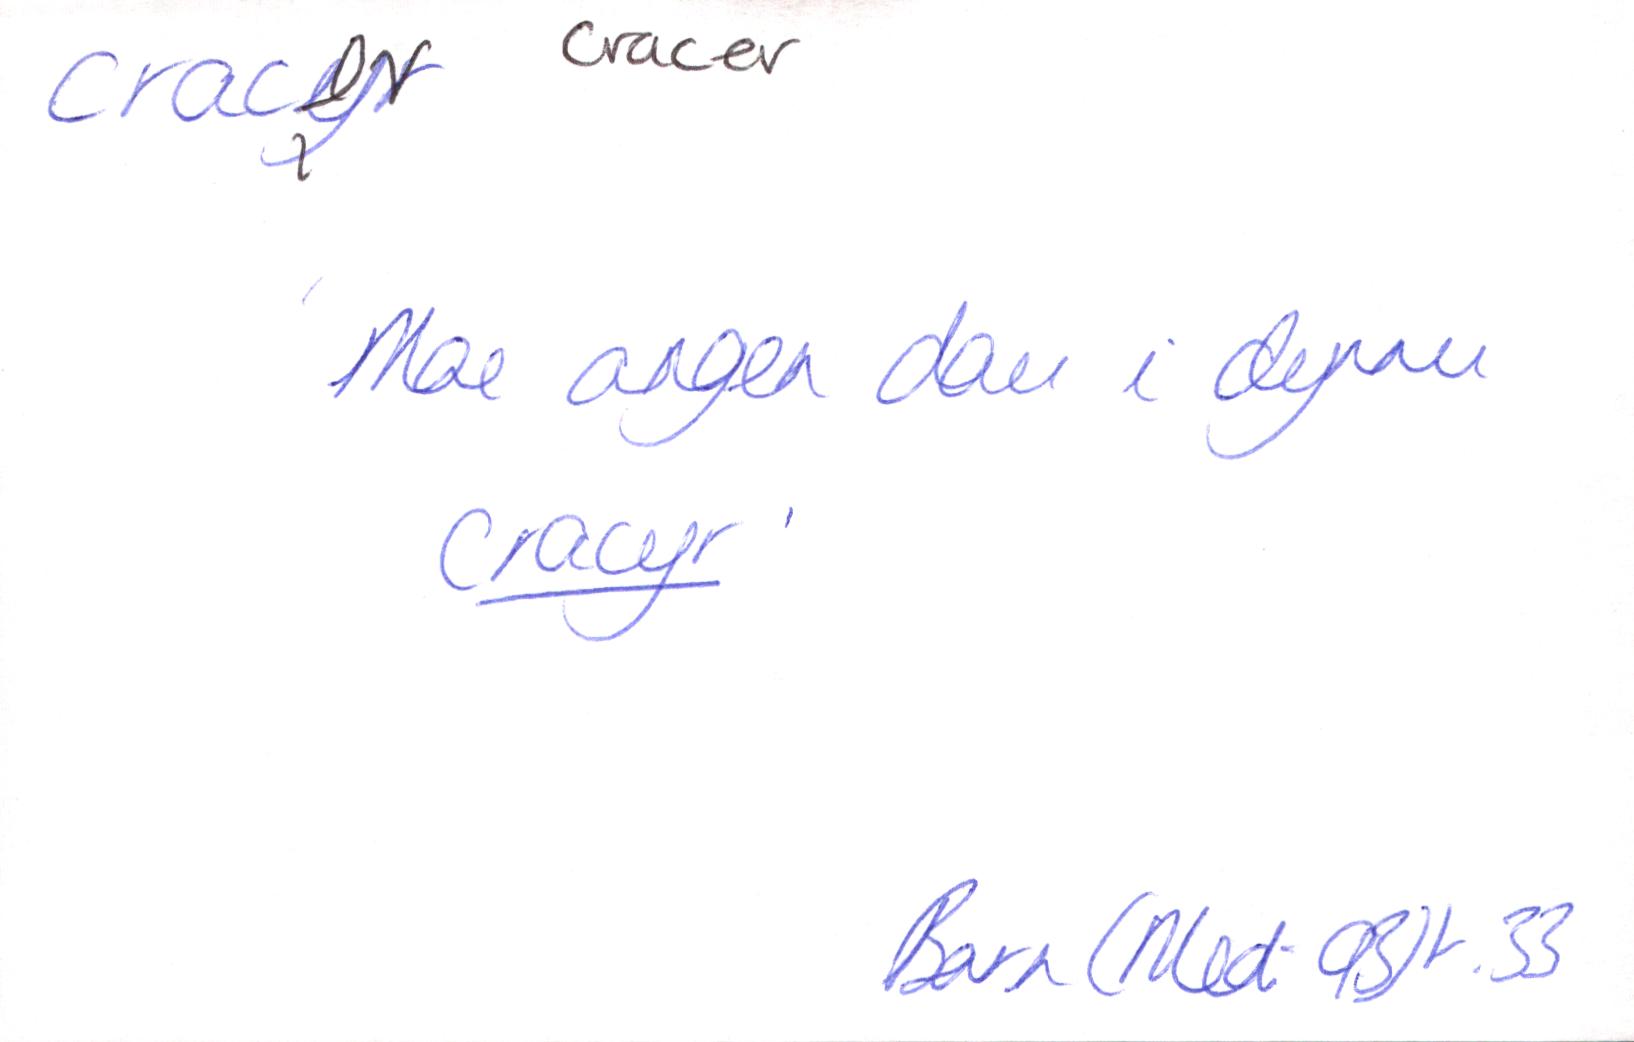 cracer cracer
'Mae angen dau i dynnu
cracyr'
Barn (Med. 93) t. 33